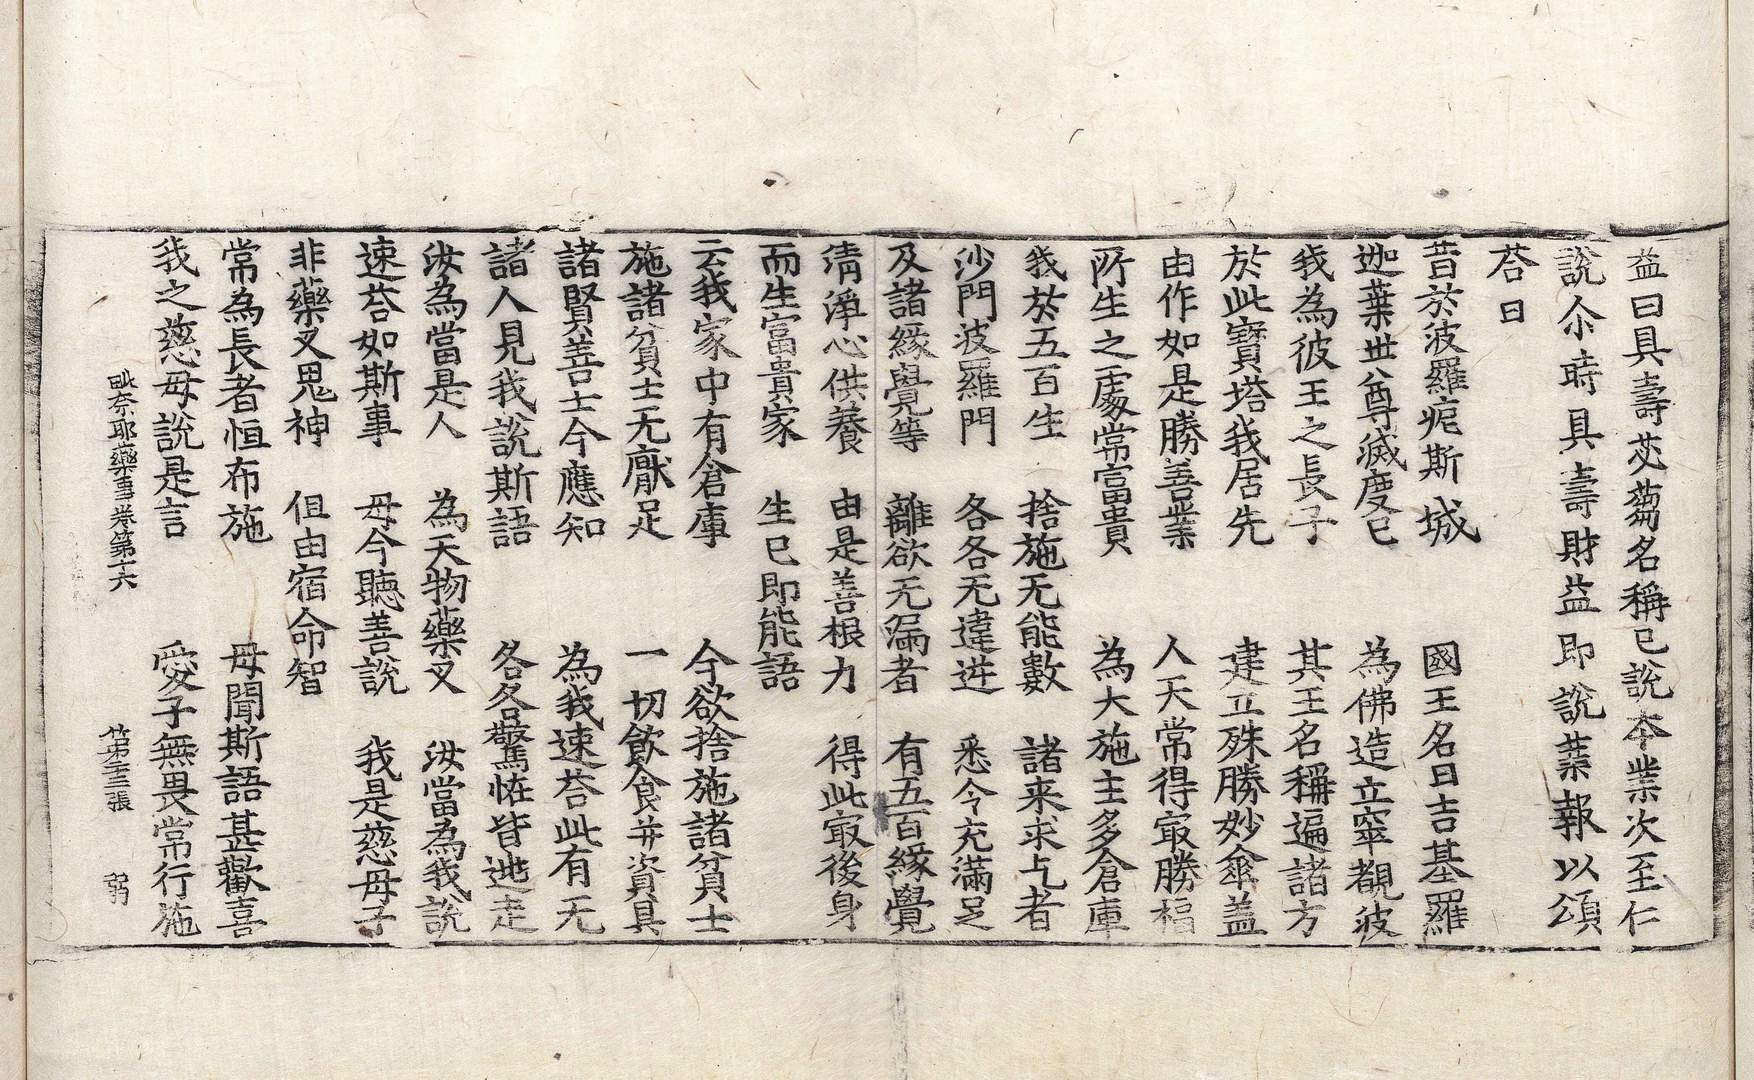 益曰具壽苾蒭名稱已說本業次至仁
說尒時具壽財益即說業報以頌
荅曰
昔於波羅痆斯城　國王名曰吉基羅
迦葉世尊滅度已　為佛造立窣覩波
我為彼王之長子　其王名稱遍諸方
於此寶塔我居先　建立殊勝妙傘盖
由作如是勝善業　人天常得㝡勝福
所生之處常富貴　為大施主多倉庫
我於五百生　捨施无能數　諸来求乞者
沙門波羅門　各各无違逆　悉令充滿足
及諸緣覺等　離欲无漏者　有五百緣覺
清淨心供養　由是善根力　得此㝡後身
而生富貴家　生已即能語
云我家中有倉庫　今欲捨施諸貧士
施諸貧士无厭足　一切飲食并資具
諸賢善士今應知　為我速荅此有无
諸人見我說斯語　各各驚恠皆迯走
汝為當是人　為天物藥叉　汝當為我說
速荅如斯事　母今聽善說　我是慈母子
非藥叉思神　但由宿命智
常為長者恒布施　母聞斯語甚歡喜
我之慈母說是言　愛子無畏常行施
毗奈耶藥事卷第十六　第十三張　弱